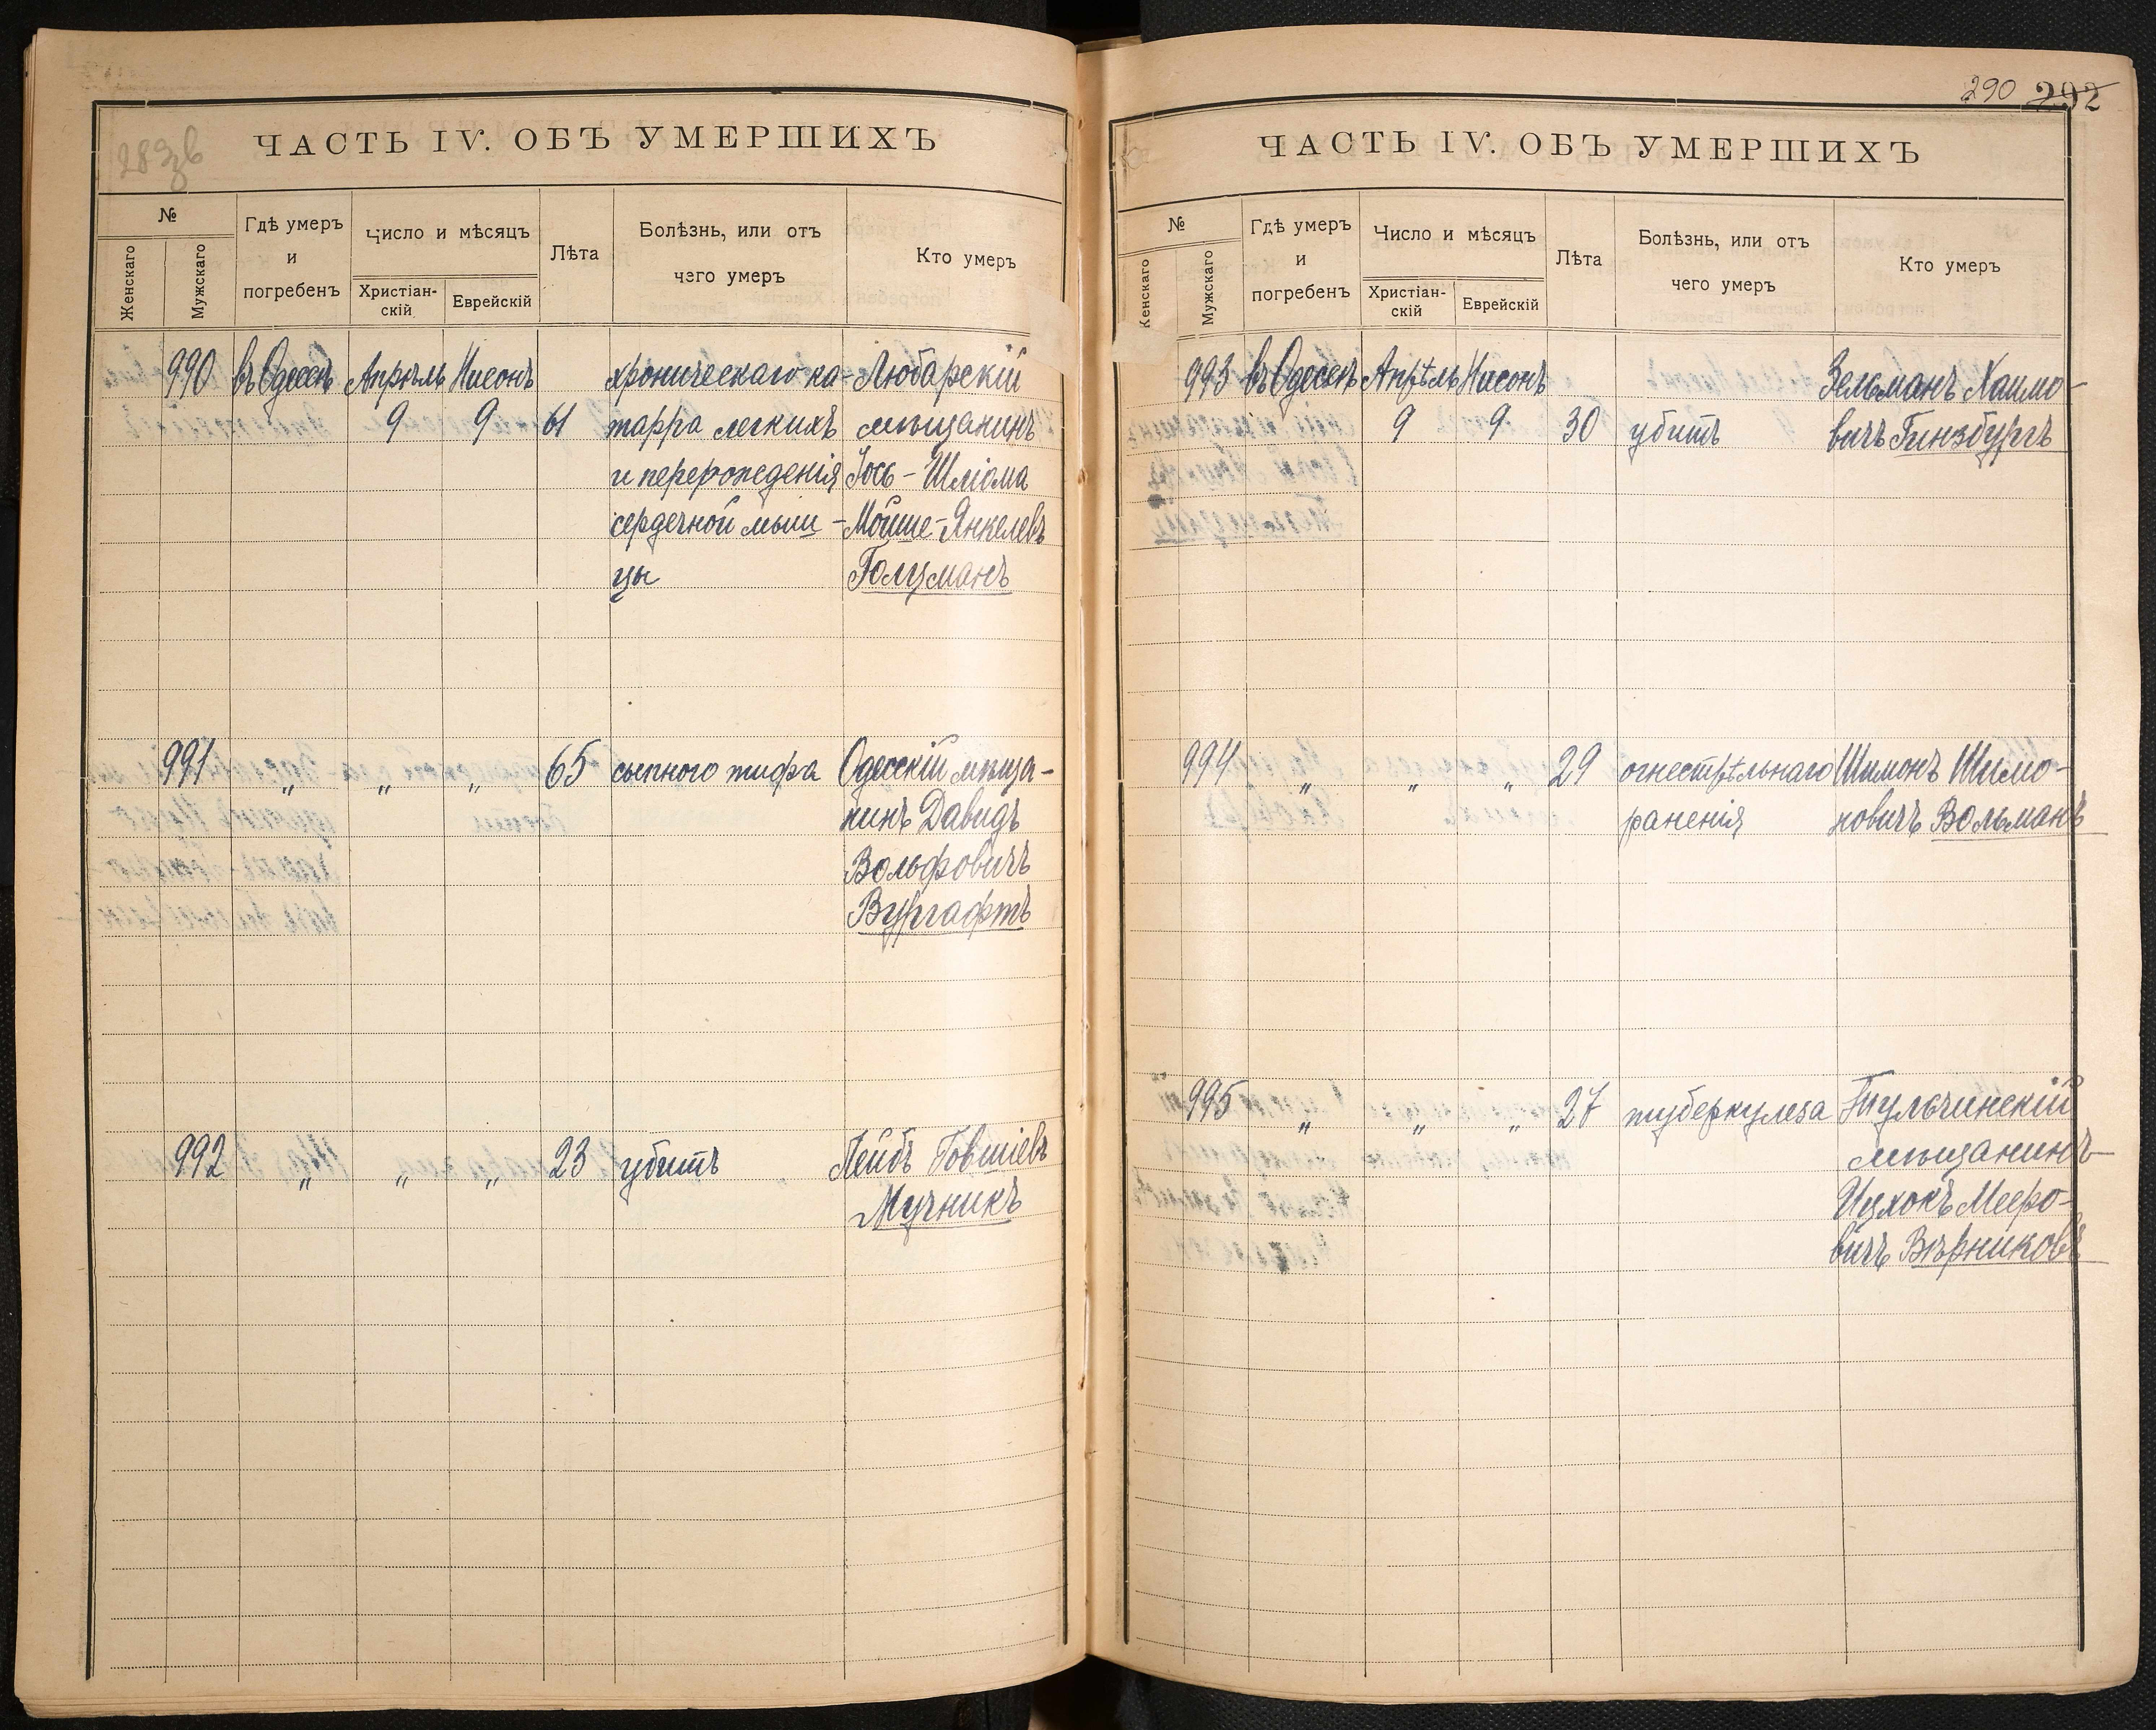 ЧАСТЬ IV. ОБЪ УМЕРШИХЪ
№
Женскаго
Мужскаго
Гдѣ умеръ
и
погребенъ
Число и мѣсяцъ
Христіан-
скій
Еврейскій
Лѣта
Болѣзнь, или отъ
чего умеръ
Кто умеръ
990 въ Одессѣ Апрѣль Нисонъ хроническаго ка- Любарскій
9 9 61 тарра легкихъ мѣщанинъ
и перерожденія Іось-Шліома
сердечной мыш- Мойше-Янкелевъ
цы Голцманъ
991 „ „ „ 65 сыпного тифа Одесскій мѣща-
нинъ Давидъ
Вольфовичъ
Вургафтъ
992 „ „ „ 23 убитъ Лейбъ Говшіевъ
Мучникъ
290 292
ЧАСТЬ IV. ОБЪ УМЕРШИХЪ
№
Женскаго
Мужскаго
Гдѣ умеръ
и
погребенъ
Число и мѣсяцъ
Христіан-
скій
Еврейскій
Лѣта
Болѣзнь, или отъ
чего умеръ
Кто умеръ
993 въ Одессѣ Апрѣль Нисонъ Зельманъ Хаимо-
9 9 30 убитъ вичъ Гинзбургъ
994 „ „ „ 29 огнестрѣльнаго Шимонъ Шимо-
раненія новичъ Вольманъ
995 „ „ „ 27 туберкулеза Тульчинскій
мѣщанинъ
Ицхокъ Мееро-
вичъ Вѣрниковъ